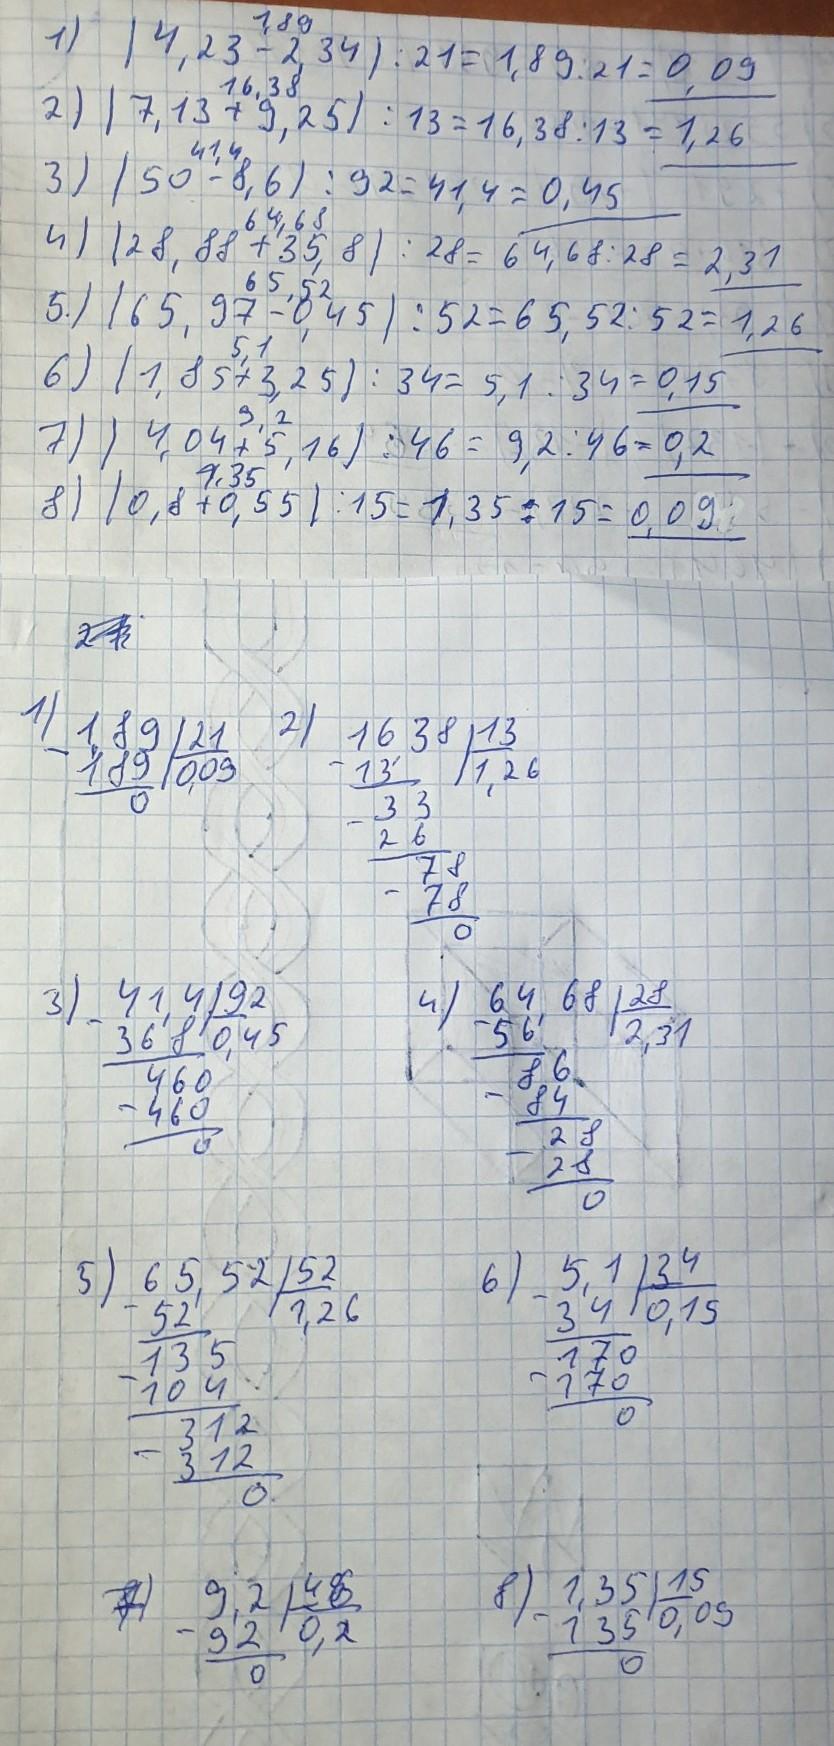 1,89
1) (4,23-2,34):21=1,89:21=0,09
16,38
2) (7,13+9,25):13=16,38:13=1,26
41,4
3) (50-8,6):92=41,4=0,45
64,68
4) (28,88+35,8):28=64,68:28=2,31
65,52
5.) (65,97-0,45):52=65,52:52=1,26
5,1
6) (1,85+3,25):34=5,1:34=0,15
9,2
7) (4,04+5,16):46=9,2:46=0,2
1,35
8) (0,8+0,55):15=1,35:15=0,09
1) 1,89 21 2) 1638 13
- 189 0,09 - 13 1,26
0 - 33
26
78
- 78
0
3) - 41,4 92 4) - 64,68 28
368 0,45 56 2,31
460 86
- 460 - 84
0 - 28
28
0
5) - 65,52 52 6) - 5,1 34
52 1,26 34 0,15
- 135 - 170
104 170
- 312 0
312
0
7) - 9,2 46 8) - 1,35 15
92 0,2 135 0,09
0 0